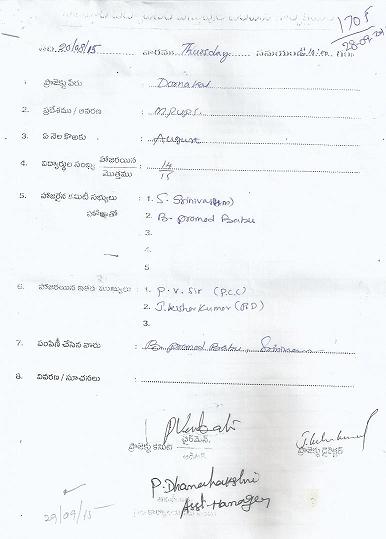 1705
28-09-
20/08/15 వారము Thursday
1. ప్రాజెక్టు పేరు : Dornakal
2. ప్రదేశము / ఆవరణ : M.P.U.P.S.
3. ఏ నెల కొఱకు : August
4. విద్యార్థుల సంఖ్య హాజరయిన / మొత్తము : 14/15
5. హాజరైన కమిటీ సభ్యులు : 1. S. Srinivas
2. B. Pramod Babu
3.
4.
5
6. హాజరయిన ఇతర ముఖ్యులు : 1. P.V. Sir (P.C.C)
2. J. Kishor Kumar (P.D)
3.
7. పంపిణీ చేసిన వారు : B. Pramod Babu, Srinivas
8. వివరణ / సూచనలు :
ప్రాజెక్టు కమిటీ ఛైర్మెన్
ప్రాజెక్టు డైరెక్టర్
P. Dhanalakshmi
Asst-Manager
29/09/15